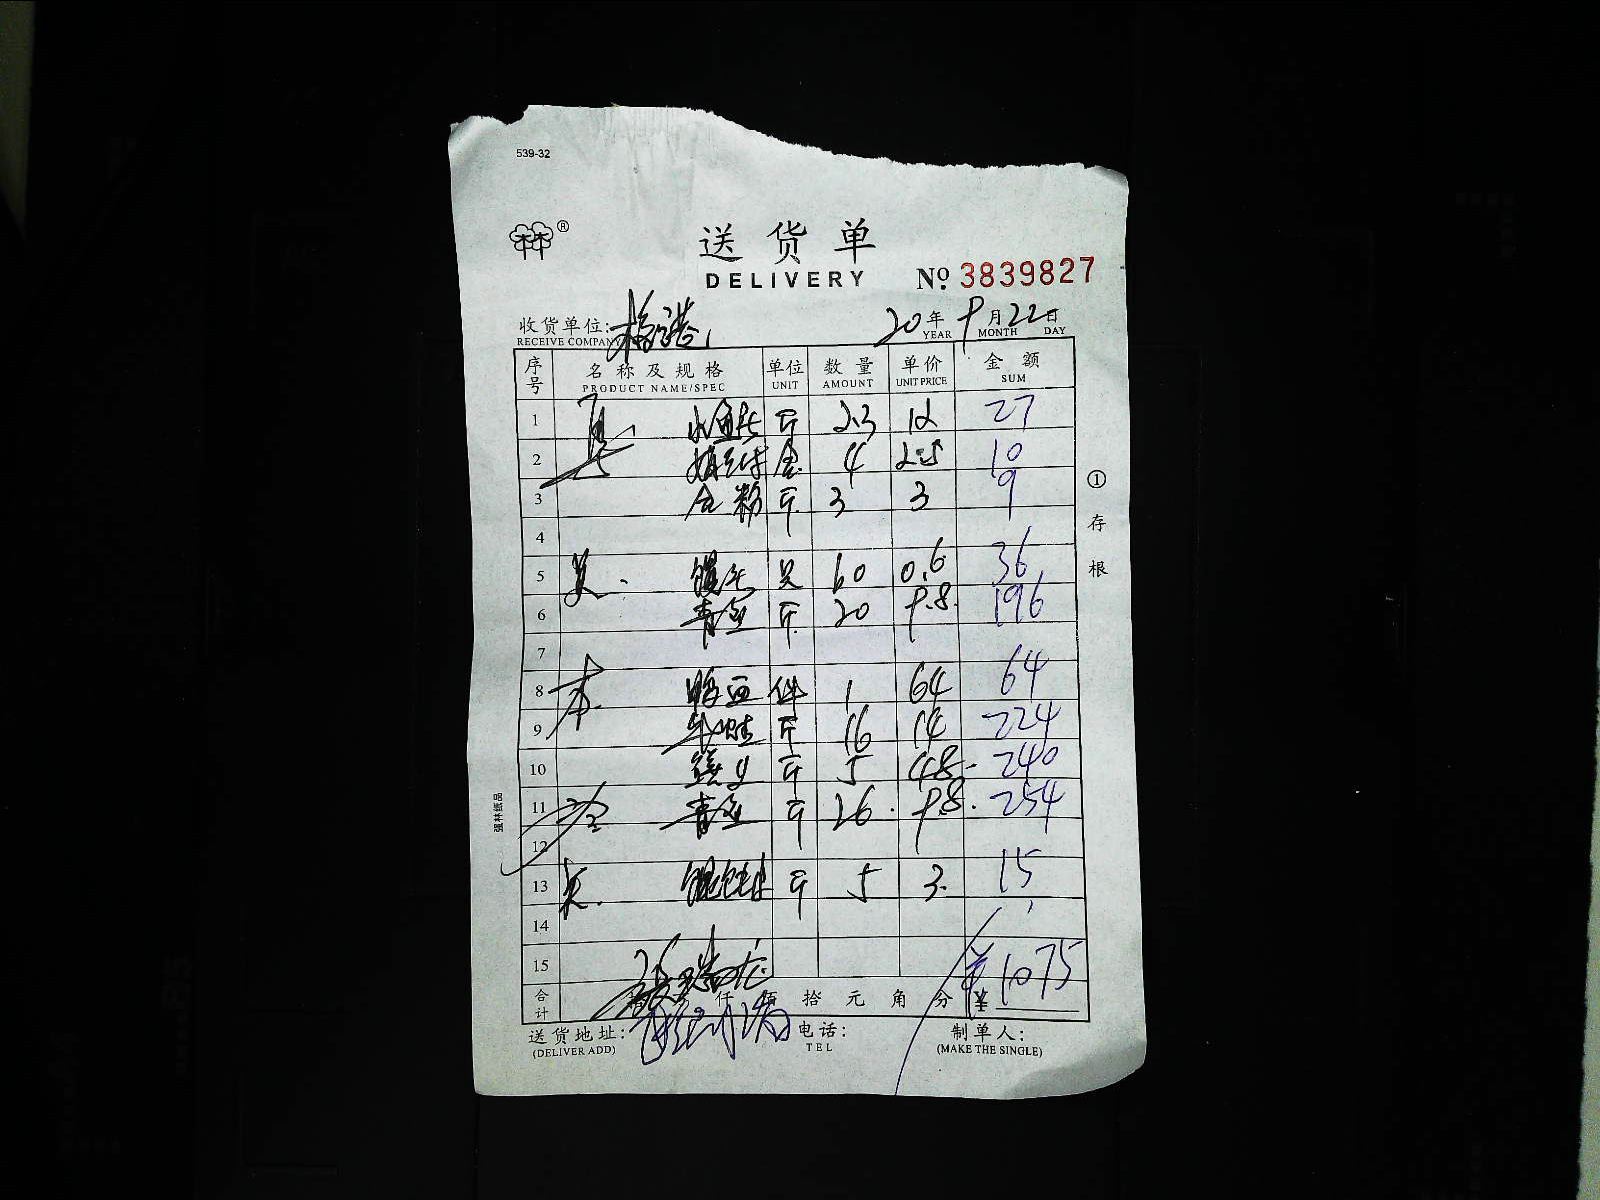 539-32
送货单
DELIVERY
№ 3839827
收货单位:
20年9月22日
RECEIVE COMPANY YEAR MONTH DAY
序号 名称及规格 单位 数量 单价 金额
PRODUCT NAME/SPEC UNIT AMOUNT UNIT PRICE SUM
1 斤 2.3 12 27
2 盒 4 2.5 10
3 斤 3 3 9
4
5 馒头 只 60 0.6 36
6 青鱼 斤 20 9.8 196
7
8 鸭血 件 1 64 64
9 牛蛙 斤 16 14 224
10 斤 5 48 240
11 青鱼 斤 26 9.8 254
12
13 斤 5 3 15
14
15 ¥1075
合计 仟 佰 拾 元 角 分 ¥
送货地址: 电话: 制单人:
(DELIVER ADD) TEL (MAKE THE SINGLE)
①存根
强林纸品